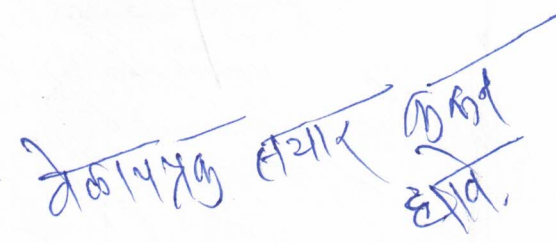 वेळापत्रक तयार करून
द्यावे.